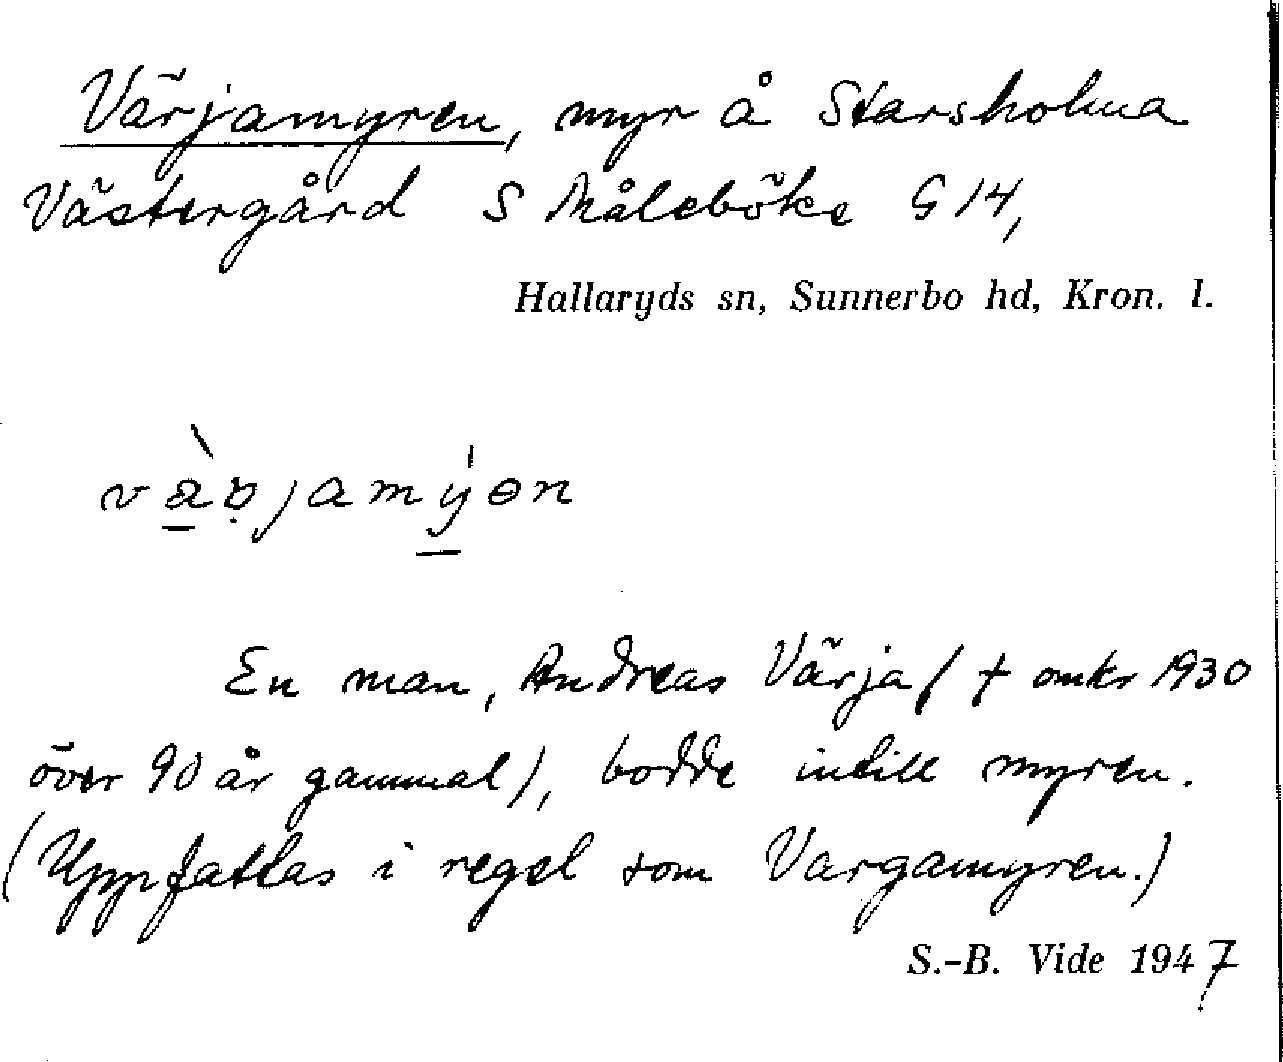 Värjamyren, myr å Starsholma
Västergård S Måleböke G 14,
Hallaryds sn, Sunnerbo hd, Kron. l.
En man, Andreas Värja ( † omkr 1930
över 90 år gammal), bodde intill myren.
(Uppfattas i regel som Vargamyren.)
S.-B. Vide 1947